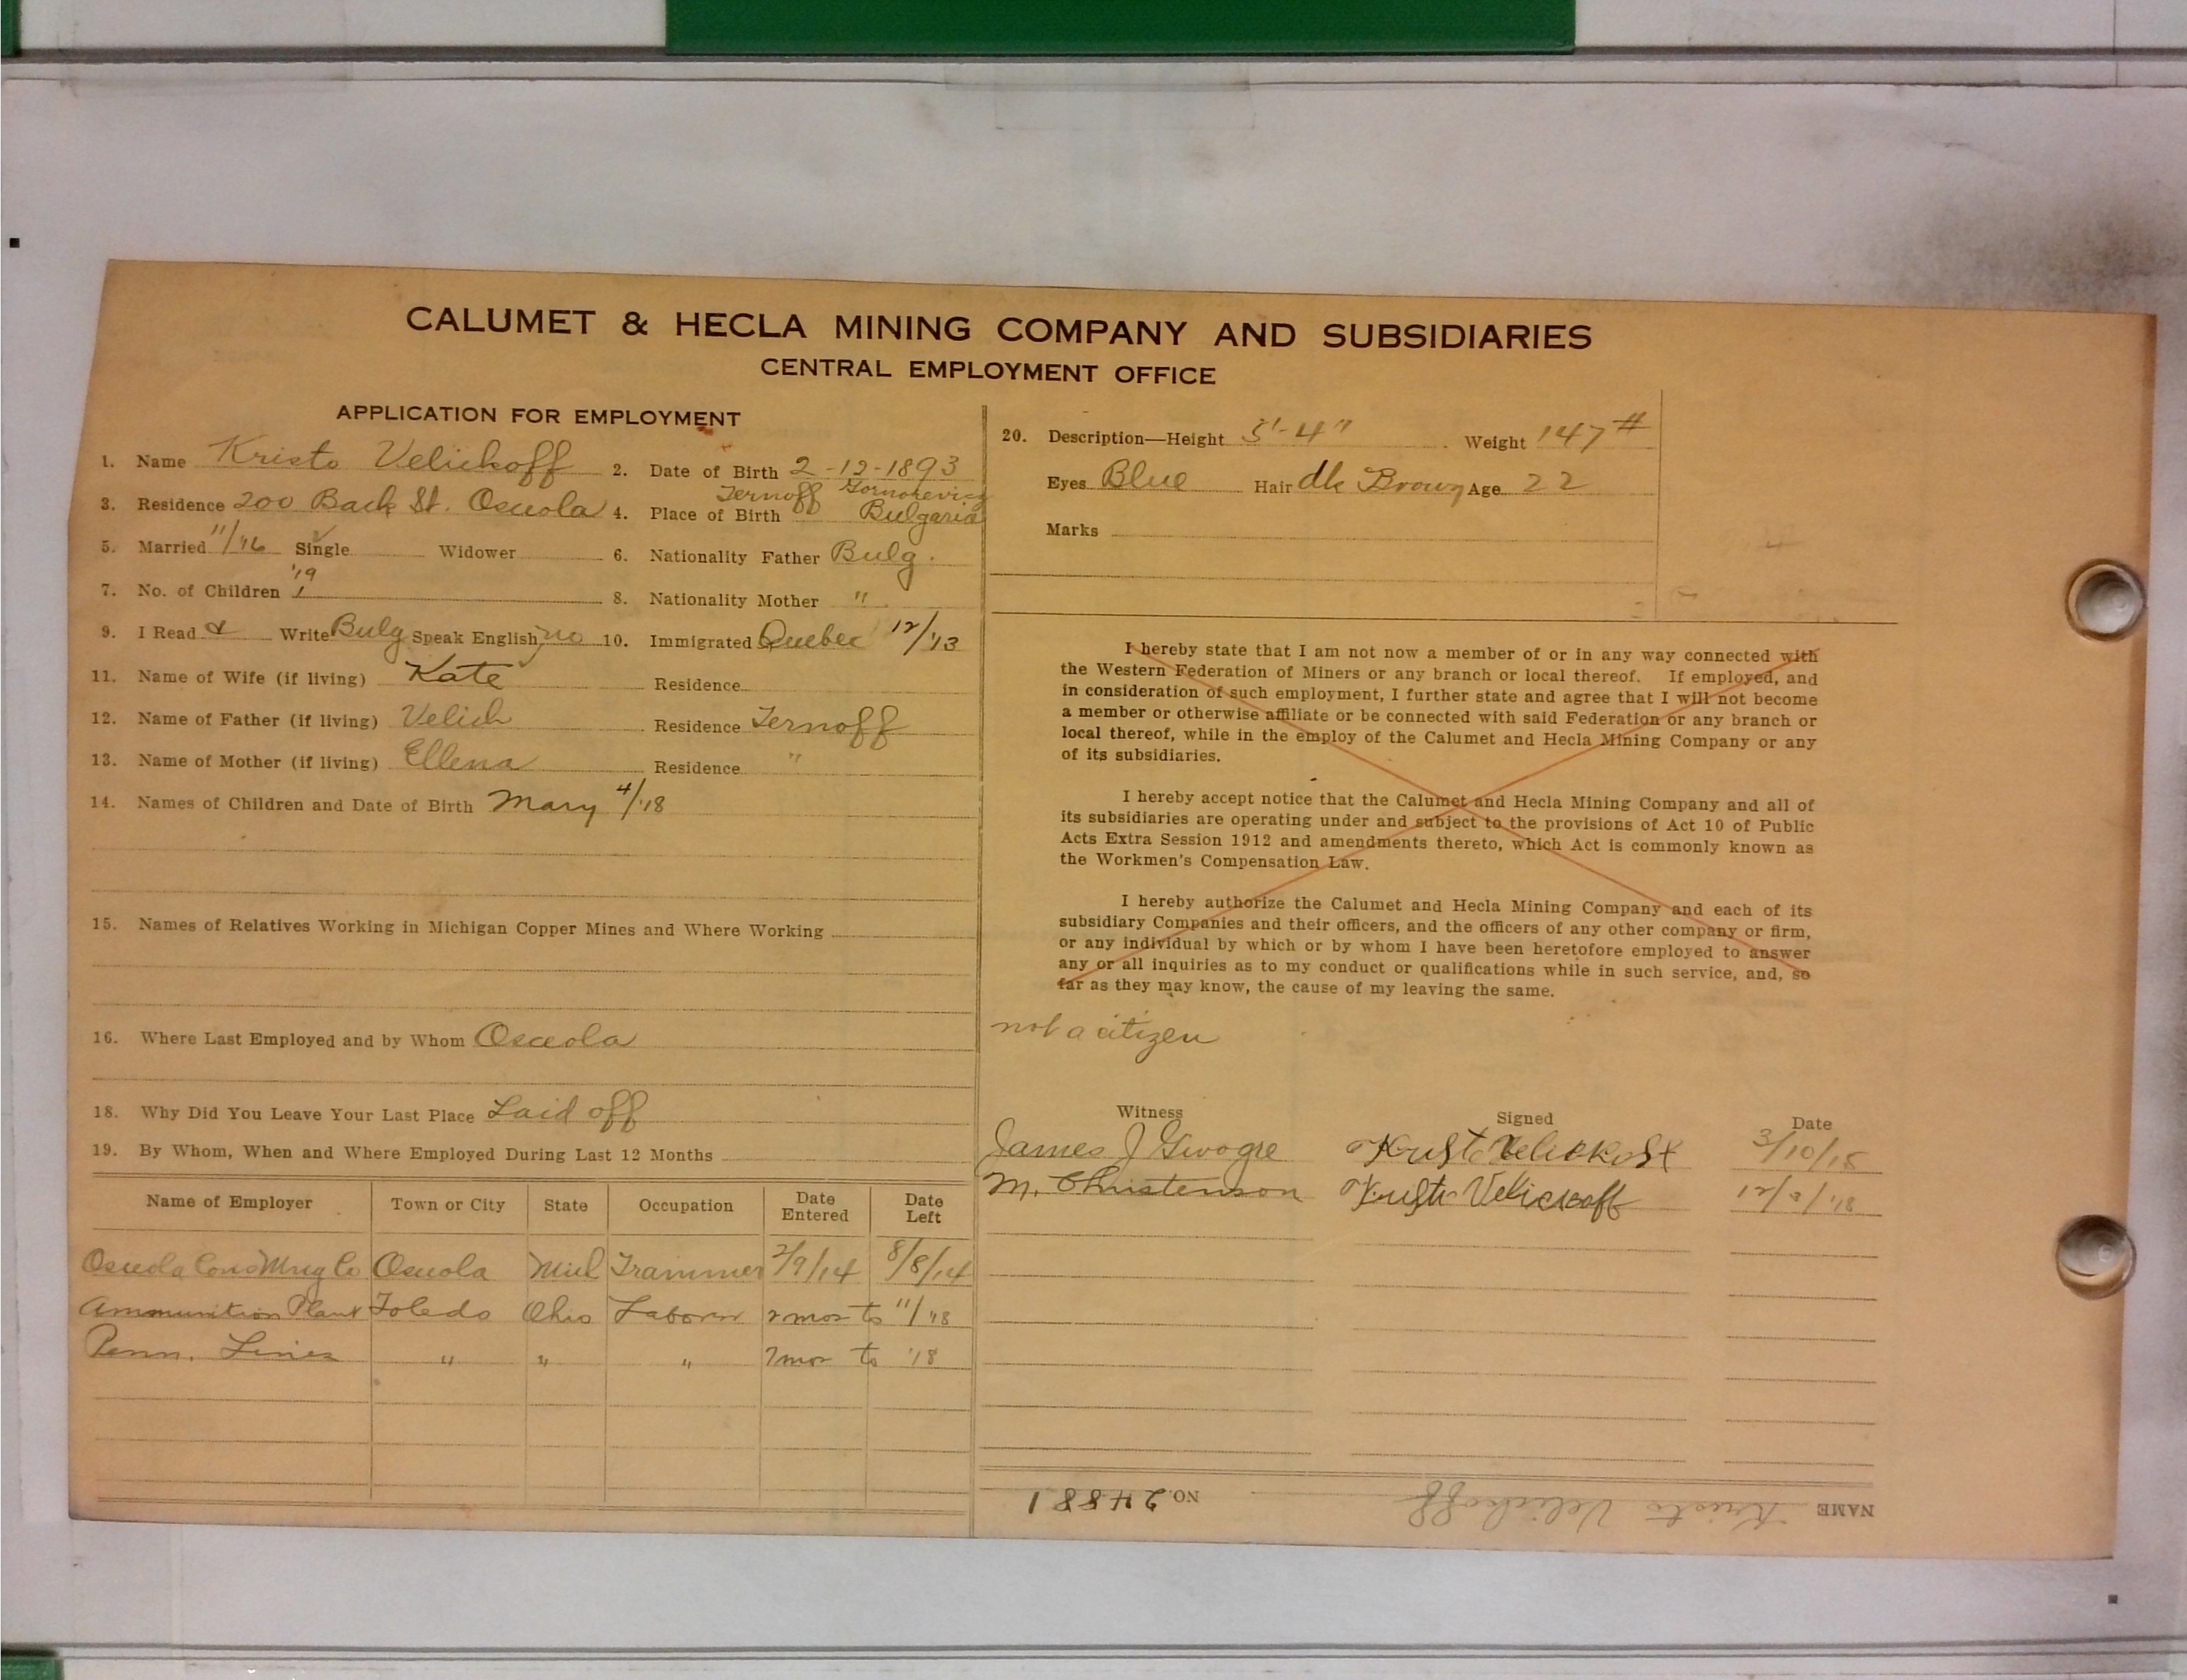 CALUMET & HECLA MINING COMPANY AND SUBSIDIARIES
CENTRAL EMPLOYMENT OFFICE
APPLICATION FOR EMPLOYMENT
1. Name Kristo Velickoff 2. Date of Birth 2-12-1893
3. Residence 200 Back St. Osceola 4. Place of Birth Ternoff Bulgaria
5. Married 11/'16 Single ✓ Widower 6. Nationality Father Bulg.
7. No. of Children '19 1 8. Nationality Mother "
9. I Read & Write Bulg Speak English no 10. Immigrated Quebec 12/'13
11. Name of Wife (if living) Kate Residence
12. Name of Father (if living) Velich Residence Ternoff
13. Name of Mother (if living) Ellena Residence "
14. Names of Children and Date of Birth Mary 4/'18
15. Names of Relatives Working in Michigan Copper Mines and Where Working
16. Where Last Employed and by Whom Osceola
18. Why Did You Leave Your Last Place Laid off
19. By Whom, When and Where Employed During Last 12 Months
Name of Employer Town or City State Occupation Date Entered Date Left
Osceola Cons Mng Co Osceola Mich Trammer 2/9/14 8/8/14
Ammunition Plant Toledo Ohio Laborer 2 mos to 11/'18
Penn. Lines " " " 7 mos to '18
20. Description—Height 5'-4" Weight 147#
Eyes Blue Hair dk Brown Age 22
Marks
I hereby state that I am not now a member of or in any way connected with
the Western Federation of Miners or any branch or local thereof. If employed, and
in consideration of such employment, I further state and agree that I will not become
a member or otherwise affiliate or be connected with said Federation or any branch or
local thereof, while in the employ of the Calumet and Hecla Mining Company or any
of its subsidiaries.
I hereby accept notice that the Calumet and Hecla Mining Company and all of
its subsidiaries are operating under and subject to the provisions of Act 10 of Public
Acts Extra Session 1912 and amendments thereto, which Act is commonly known as
the Workmen's Compensation Law.
I hereby authorize the Calumet and Hecla Mining Company and each of its
subsidiary Companies and their officers, and the officers of any other company or firm,
or any individual by which or by whom I have been heretofore employed to answer
any or all inquiries as to my conduct or qualifications while in such service, and, so
far as they may know, the cause of my leaving the same.
not a citizen
Witness Signed Date
James J 3/10/15
M. Christenson Velickoff 12/3/'18
NAME Kristo Velickoff NO. 24881